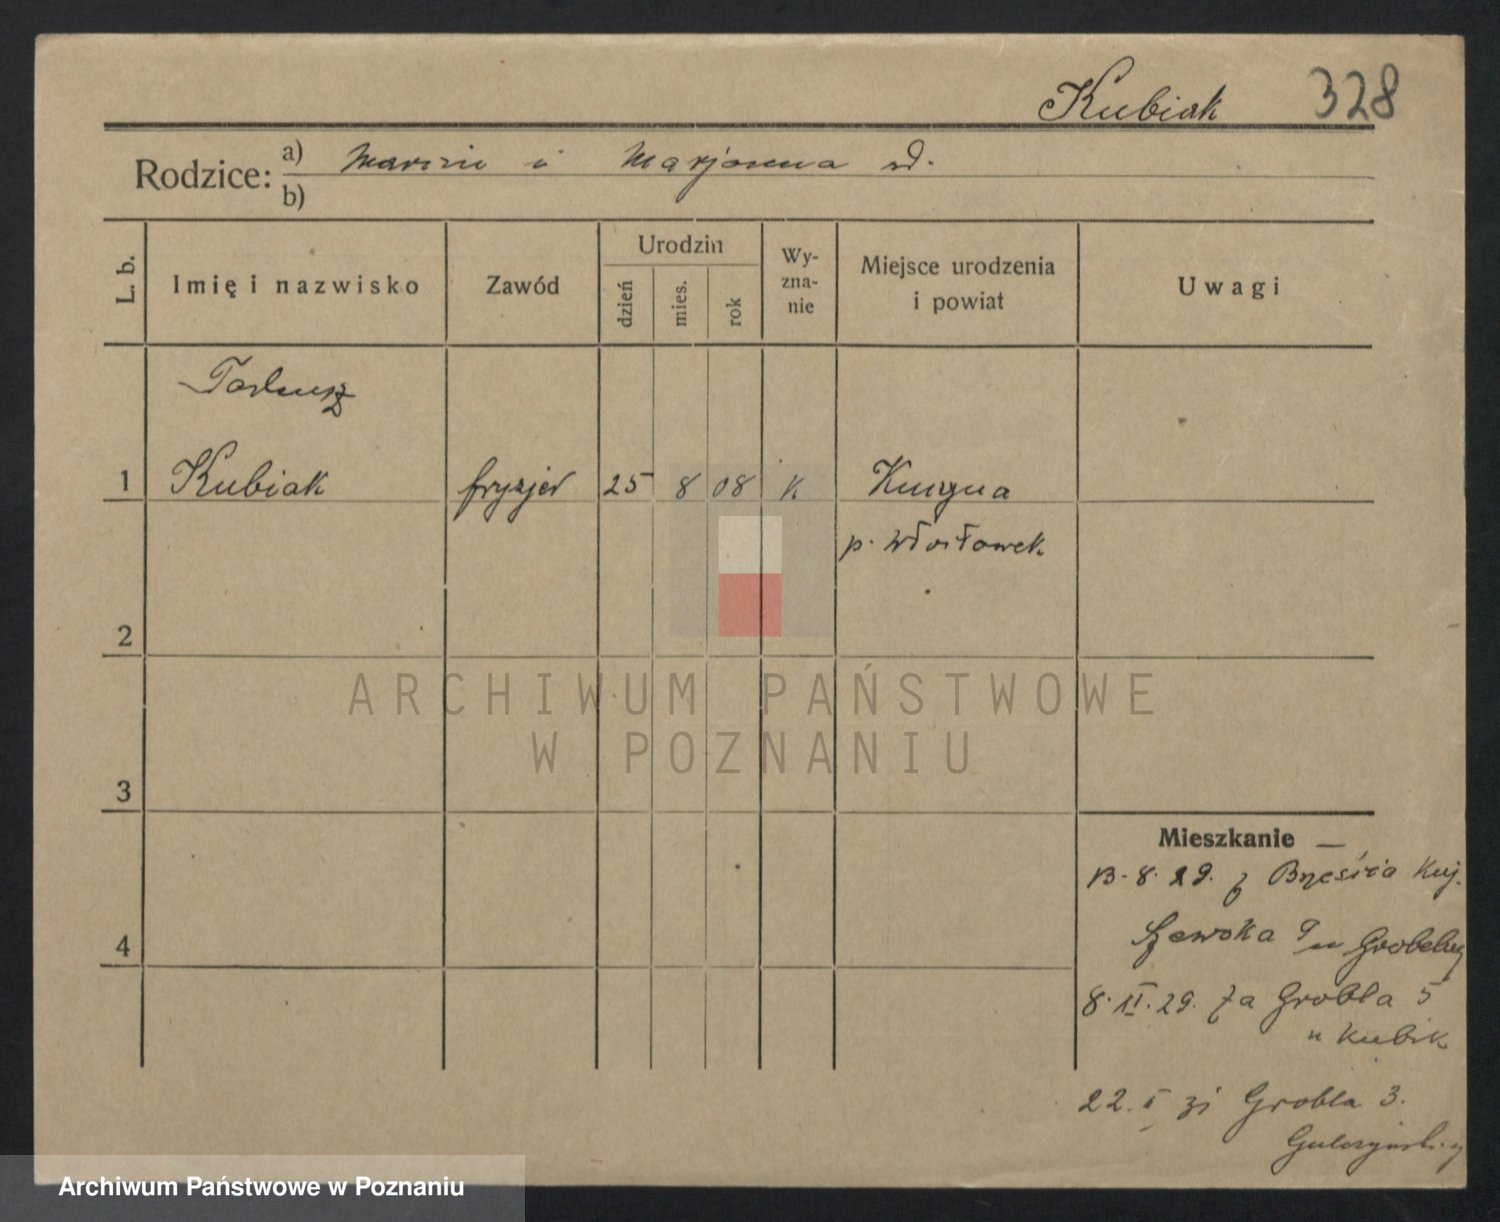 Kubiak 328
Rodzice: a) Marcin i Marjanna
b)
L. b.
Imię i nazwisko
Zawód
Urodzin
dzień
mies.
rok
Wy-
zna-
nie
Miejsce urodzenia
i powiat
Uwagi
Tadeusz
1 Kubiak fryzjer 25 8 08 K
p. Włocławek
2
ARCHIWUM PAŃSTWOWE
W POZNANIU
3
Mieszkanie —
13. 8. 29. z Brześcia Kuj.
Szewska 9 u
8. II. 29. Za Grobla 5
u Kubik
22. Grobla 3.
4
Archiwum Państwowe w Poznaniu